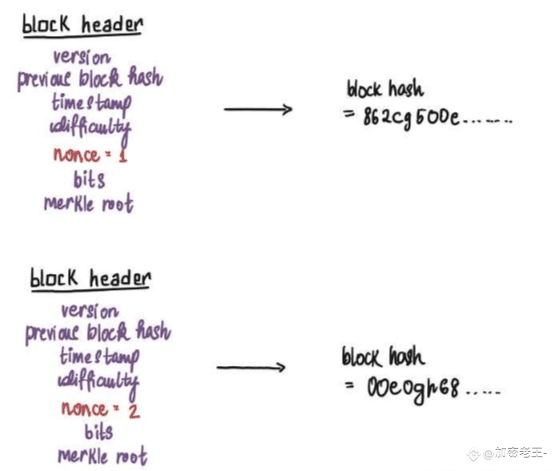 block header
version
previous block hash
timestamp
difficulty
nonce = 1
bits
merkle root
block hash
= 862cg500e.......
block header
version
previous block hash
timestamp
difficulty
nonce = 2
bits
merkle root
block hash
= 00e0gh68.....
@加密老王-